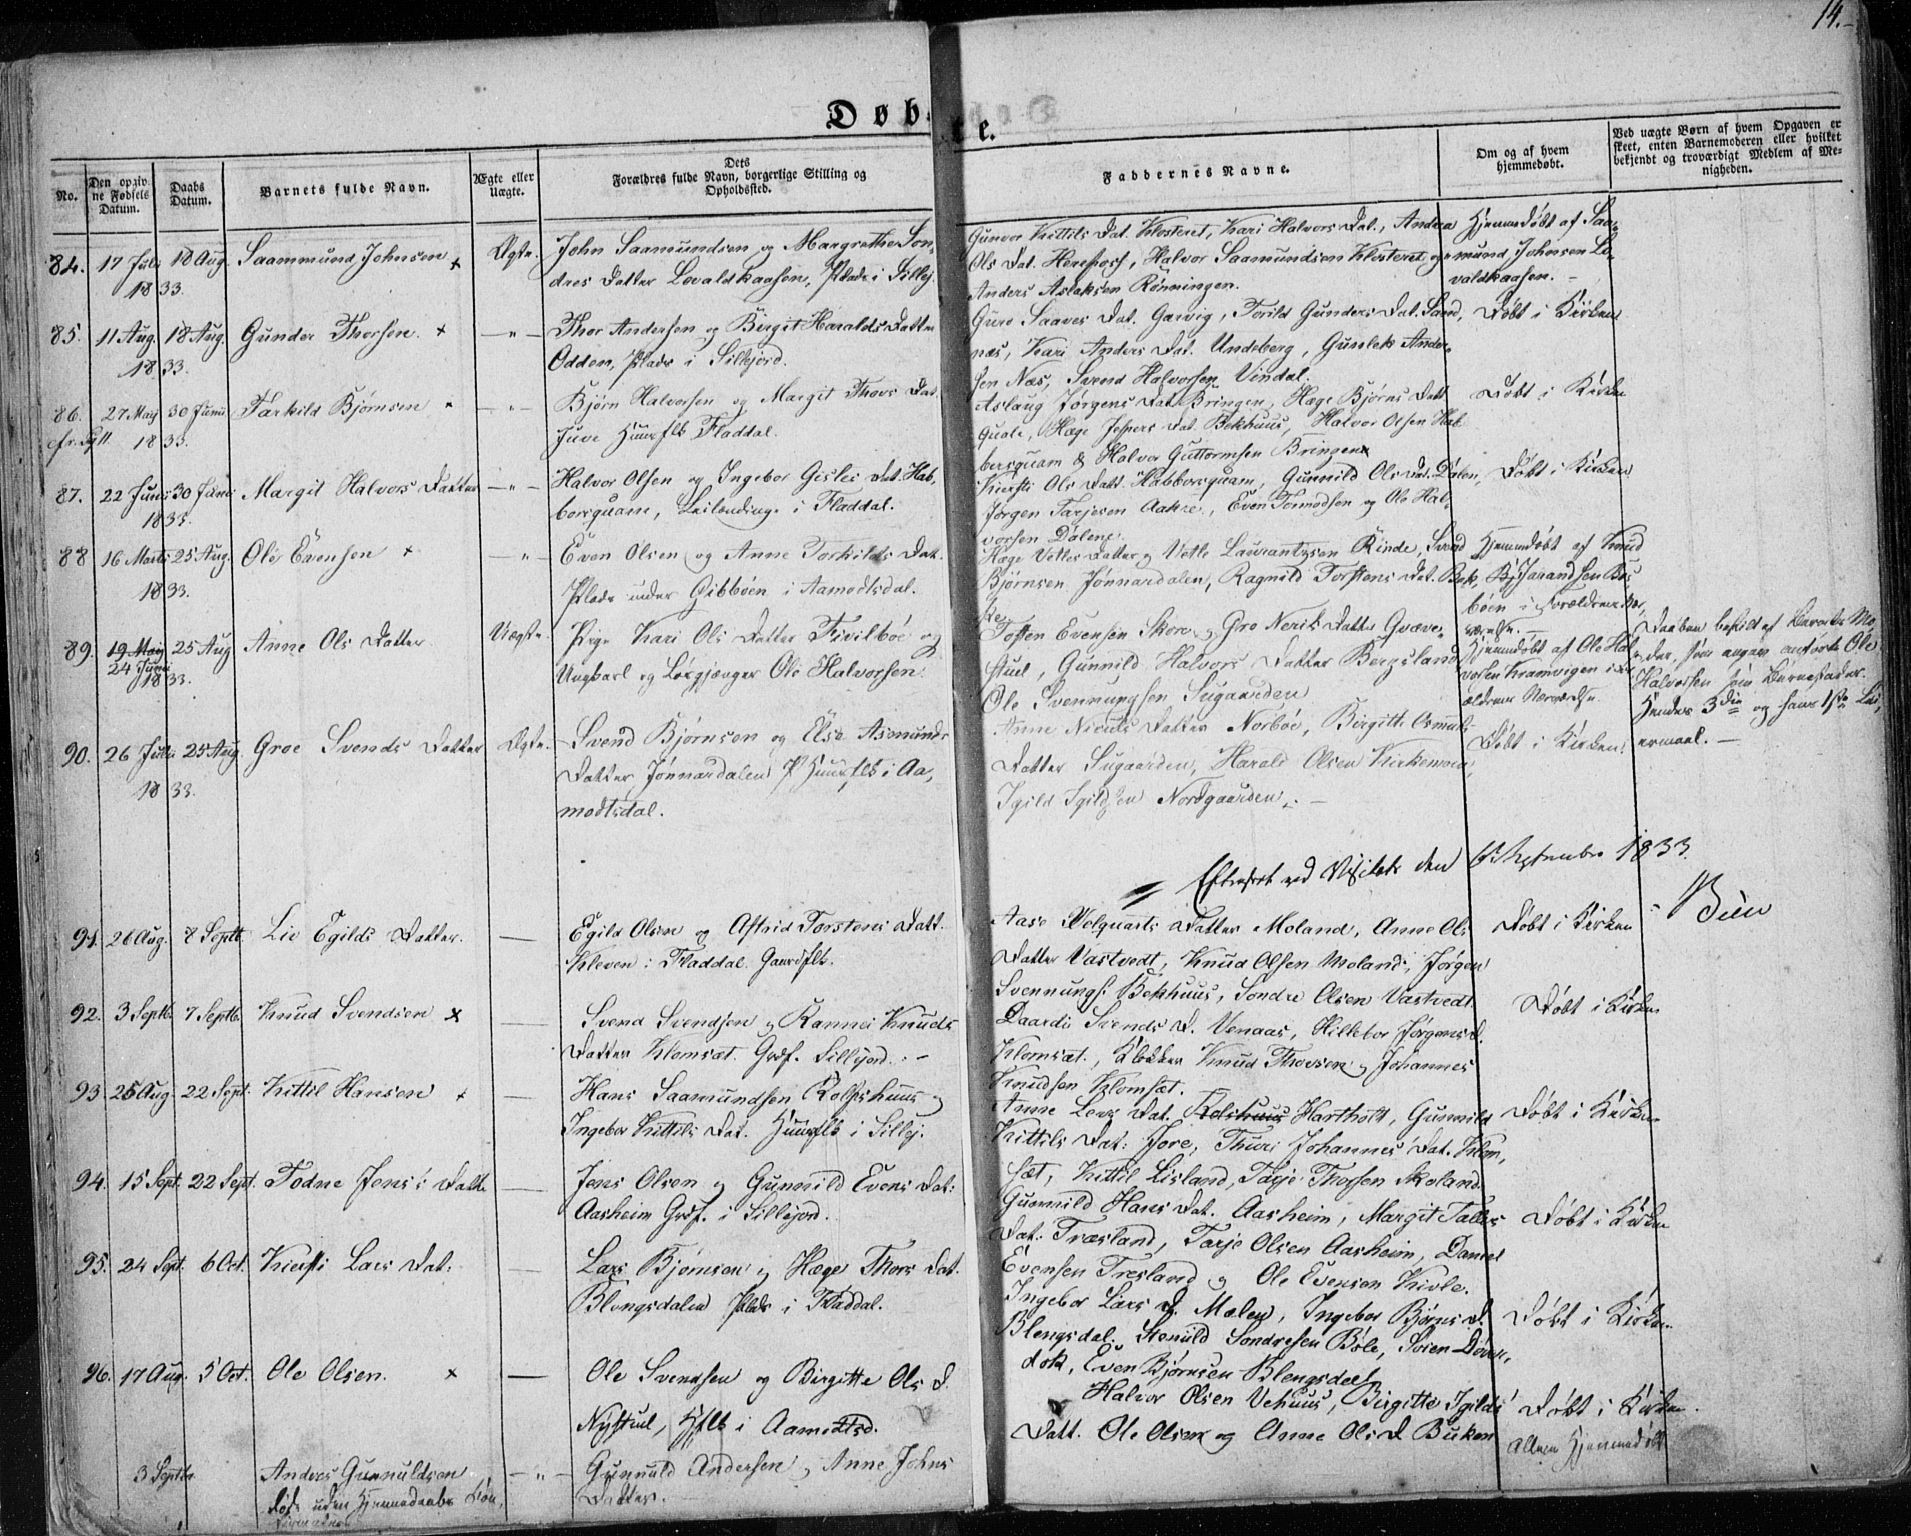 14.
Døbte.
No.
Den opgivne Fødsels Datum.
Daabs Datum.
Barnets fulde Navn.
Ægte eller Uægte.
Dets Forældres fulde Navn, borgerlige Stilling og Opholdssted.
Faddernes Navne.
Om og af hvem hjemmedøbt.
Ved uægte Børn af hvem Opgaven er skeet, enten Barnemoderen eller hvilket bekjendt og troværdigt Medlem af Menigheden.
84. 17 Juli 1833. 18 Aug. Saammund Johnsen + Ægte.
John Saamundsen og Margrethe Son-
dres Datter Lovaldkaasen, Plads i Sillej.
Gunvor Kittils Dat. Klosteret, Kari Halvors Dat., Andrea
Ols Dat. Herefoss, Halvor Saamundsen Klosteret og
Anders Aslaksen Rønningen.
Hjemmedøbt af Saa-
mund Johnsen Lo-
valdkaasen. -
85. 11 Aug. 1833. 18 Aug. Gunder Thorsen. + -"-
Thor Andersen og Birgit Haralds Datter
Odden, Plads i Sillejord.
Guro Saaves Dat. Garvig, Torild Gunders Dat. Sand,
næs, Kari Anders Dat. Undeberg, Gunlek Ander-
sen Næs, Svend Halvorsen Vindal.
Døbt i Kirken
86. 27 May 1833. 30 Junii Tarkild Bjørnsen -"-
Bjørn Halvorsen og Margit Thors Dat.
Juve Huusflk Fladdal.
Aslaug Jørgens Dat. Bringen, Hæge Bjørns Datt
Quale, Hæge Jespers Dat. Bekhuus, Halvor Olsen Hab
bersquam & Halvor Guttormsen Bringen
Døbt i Kirken
87. 22 Juni 1833. 30 Juni Margit Halvors Datter -"-
Halvor Olsen og Ingebor Gisles Dat. Hab,
borsquam, Leilænding i Fladdal.
Kiersti Ols Datt. Habborsquam, Gunnild Ols Dat. Dalen,
Jørgen Tarjesen Aakre, Even Tormodsen og Ole Hal,
vorsen Dalene.
Døbt i Kirken
88 16 Marts 1833. 25 Aug. Ole Evensen + -"-
Even Olsen og Anne Torkilds Dat.
Plads under Gibbøen i Aamodtsdal.
Hæge Vetles Datter & Vetle Laurantzsen Rinde, Svend
Bjørnsen Jønnardalen, Ragnild Torstens Dat. Bek,
Hjemmedøbt af Knud
89. 19 May 24 Junii 1833. 25 Aug Anne Ols Datter Uægte.
Pige Kari Ols Datter Fivilbøe og
Ungkarl og Løsgjænger Ole Halvorsen.
Tosten Evensen Skore & Gro Neris Datter Gvæve-
stuel, Gunnild Halvors Datter Bergsland
Ole Svennungsen Sugaarden
Hjemmedøbt af Ole Hal-
vorsen Kramvigen i For
ældrenes Nærværelse.
Daaben bestilt af Barnets Mo,
der, som angav anførte Ole
Halvorsen som Barnefader.
Hendes 3die og hans 1ste Lei,
ermaal. -
90. 26 Juli 1833. 25 Aug. Groe Svends Datter Ægte.
Svend Bjørnsen og Else Asmunds
Datter, Jønnardalen Huusflk i Aa,
modtsdal.
Datter Sugaarden, Harald Olsen Kirkemoen,
Igild Igildsen Nordgaarden. -
Døbt i Kirken.
Efterseet ved Visitats den September 1833.
91. 26 Aug. 8 Septb. Liv Egilds Datter. -
Egild Olsen og Astrid Torstens Datt.
Kleven i Fladdal. Gaardflk.
Aase Velquarts Datter Moland, Anne Ols
Datter Vastvedt, Knud Olsen Moland, Jørgen
Svennungs. Bekhuus, Sondre Olsen Vastvedt
Døbt i Kirken
92. 3 Septb. 7 Septb. Knud Svendsen x -
Svend Svendsen & Rannei Knuds
Datter Klomsæt. Grdf. Sillejord. -
Daardi Svends D. Venaas, Hillebor Jørgens D.
Klomsæt, Klokker Knud Thorsen & Johannes
Knudsen Klomsæt.
Døbt i Kirken
93. 25 Aug. 22 Sept. Kittil Hansen + -
Hans Saamundsen Rolfshuus &
Ingebor Kittils Dat. Huusflk i Sillej.
Anne Lars Dat. Harthott, Gunnild
Kittils Dat. Jore, Thuri Johannes Dat. Klom,
sæt, Kittil Lisland, Tarje Thorsen Skoland.
Døbt i Kirken
94. 15 Sept. 22 Sept. Todne Jens's Datte -
Jens Olsen & Gunnild Evens Dat.
Aasheim Grdf. i Sillejord.
Gunnild Hans Dat. Aasheim, Margit Talles
Dat. Træsland, Tarje Olsen Aasheim, Daniel
Evensen Tresland & Ole Evensen Kivle.
Døbt i Kirken
95. 24 Sept. 6 Oct. Kiersti Lars Dat. -
Lars Bjørnsen & Hæge Thors Dat.
Blengsdalen Plads i Fladdal.
Ingebor Lars D. Mælen, Ingebor Bjørns D.
Blengsdal. Stenuld Sondresen Bøle,
Even Bjørnsen Blengsdal
Døbt i Kirken
96. 17 Aug. 5 Oct. Ole Olsen. x -
Ole Svendsen og Birgitte Ols D.
Nystuel, Hflk i Aamotsd.
Halvor Olsen Vehuus, Birgitte Igilds
Datt. Ole Olsen og Anne Ols D Buken
Døbt i Kirken.
3 Septbr Anders Gunnuldsen -"-
Gunnuld Andersen & Anne Johns
Datter.